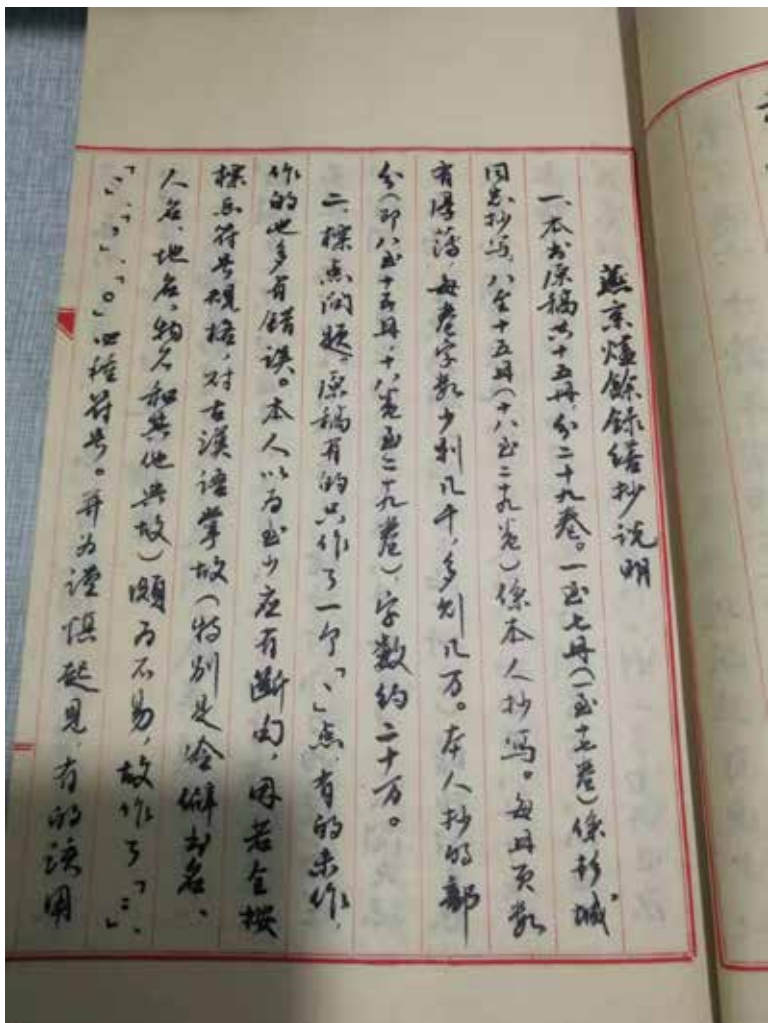 燕京爐餘録缮抄说明
一、本书原稿共十五册，分二十九卷。一至七册（一至十七卷）係杉城
同志抄写，八至十五册（十八至二十九卷）係本人抄写。每册页数
有厚薄，每卷字数少则几千，多则几万。本人抄的部
分（即八至十五册，十八卷至二十九卷）字数约二十万。
二、标点问题。原稿有的只作了一个「、」点，有的未作，
作的也多有错误。本人以为至少应有断句，因若全按
标点符号规格，对古漢语掌故（特别是冷僻书名、
人名、地名、物名和其他典故）颇为不易，故作了「：」、
「；」、「，」、「。」四种符号。并为谨慎起见，有的误用